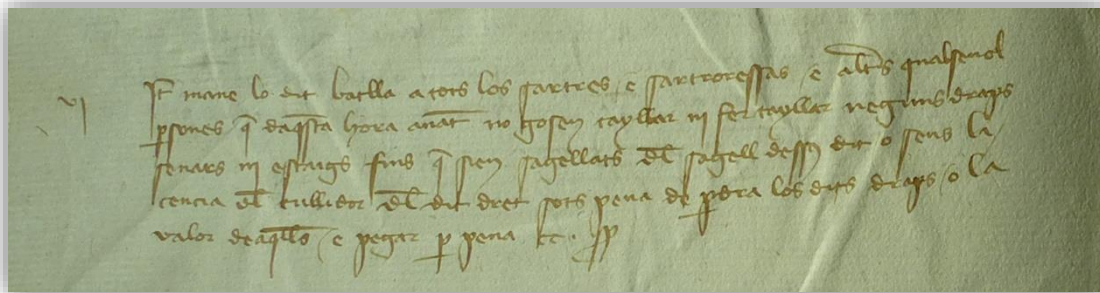 VI
It mane lo dit batlla a tots los sartres e sartroressas e altrs qualsevol
psones q daqsta hora auāt no gosen tayllar ni fer tayllar neguns draps
senars ni escaigs fins q sien sagellats dl sagell dessus dit o sens li
cencia dl cullidor dl dit dret sots pena de pdra los dits draps o la
valor de aqlls e pagar p pena